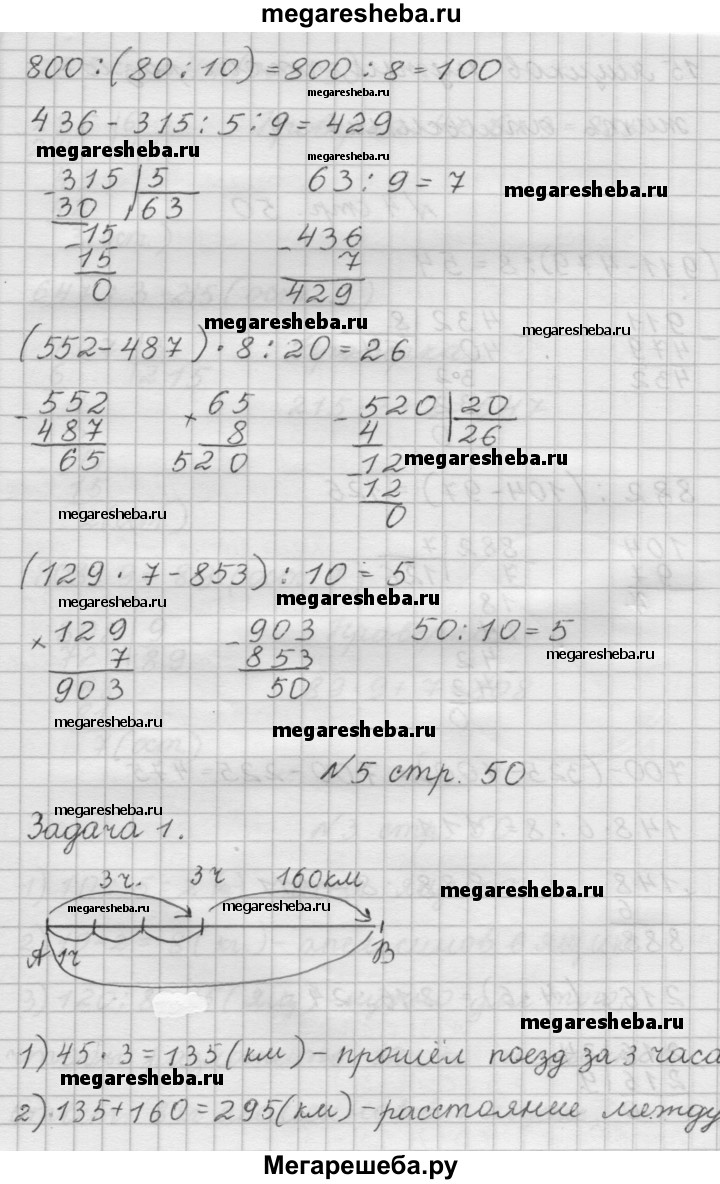 megaresheba.ru
800:(80:10)=800:8=100
megaresheba.ru
436-315:5:9=429
megaresheba.ru megaresheba.ru
315 5 63:9=7 megaresheba.ru
30 63
15 436
15 7
0 429
megaresheba.ru megaresheba.ru
(552-487)·8:20=26
552 × 65 520 20
487 8 4 26
65 520 12 megaresheba.ru
12
megaresheba.ru 0
(129·7-853):10=5
megaresheba.ru megaresheba.ru
× 129 903 50:10=5
7 853 megaresheba.ru
903 50
megaresheba.ru megaresheba.ru
№5 стр. 50
megaresheba.ru
Задача 1.
3ч. 3ч 160км megaresheba.ru
megaresheba.ru megaresheba.ru
А 1ч В
megaresheba.ru
1) 45·3=135(км)-прошёл поезд за 3 часа
megaresheba.ru
2) 135+160=295(км)-расстояние между
Мегарешеба.ру